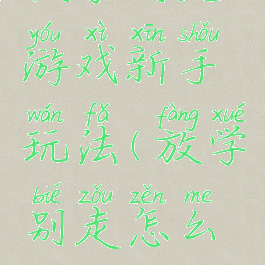 yóu xì xīn shǒu
游戏新手
wán fǎ fàng xué
玩法(放学
bié zǒu zěn me
别走怎么